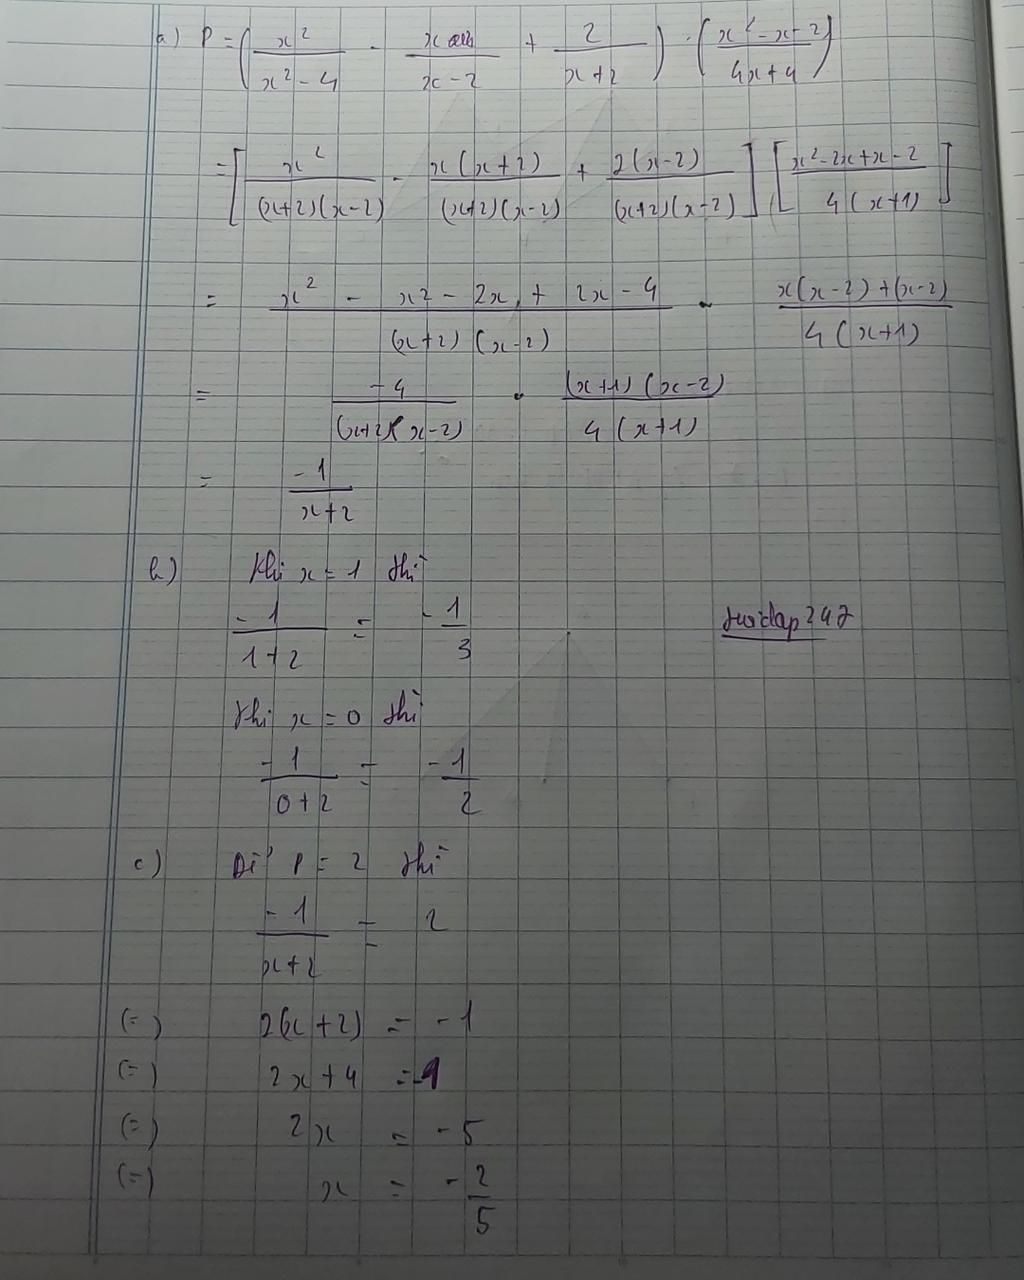 a) P = (x²/(x² - 4) - x/(x - 2) + 2/(x + 2)) · (x² - x - 2)/(4x + 4)
= [x²/((x+2)(x-2)) - x(x+2)/((x+2)(x-2)) + 2(x-2)/((x+2)(x-2))] [(x² - 2x + x - 2)/(4(x+1))]
= (x² - x2 - 2x + 2x - 4)/((x+2)(x-2)) · (x(x-2) + (x-2))/(4(x+1))
= -4/((x+2)(x-2)) · ((x+1)(x-2))/(4(x+1))
= -1/(x+2)
b) Khi x = 1 thì
-1/(1+2) = -1/3
hoidap247
Khi x = 0 thì
-1/(0+2) = -1/2
c) Để P = 2 thì
-1/(x+2) = 2
(=) 2(x+2) = -1
(=) 2x + 4 = -1
(=) 2x = -5
(=) x = -2/5